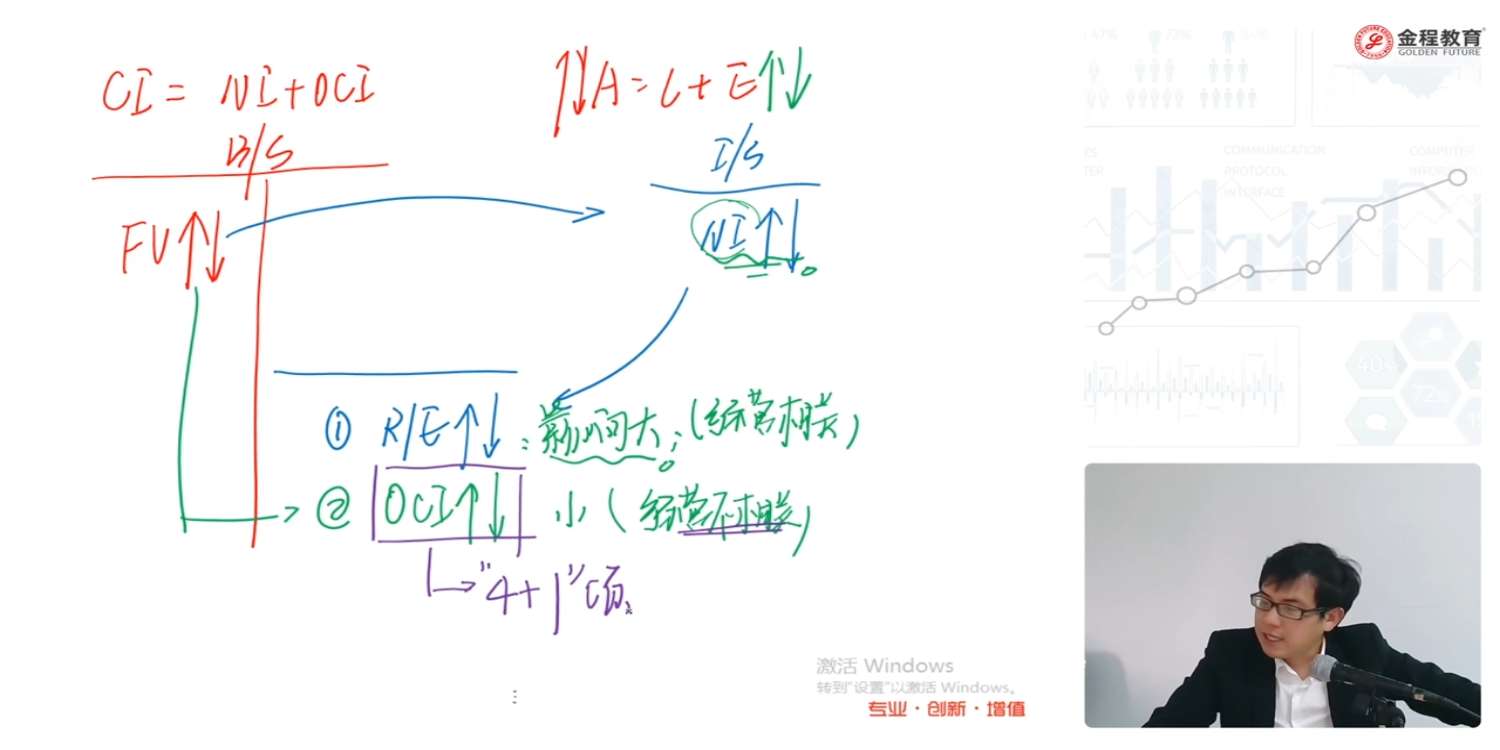 金程教育
GOLDEN FUTURE
CI = NI + OCI
↑↓A = L + E↑↓
B/S
I/S
FV↑↓
NI↑↓
① R/E↑↓ : 影响大; (经营相关)
② OCI↑↓ 小 (经营不相关)
↳ "4+1"项
COMMUNICATION
PROTOCOL
INTERFACE
COMPUTER
激活 Windows
转到"设置"以激活 Windows。
专业·创新·增值